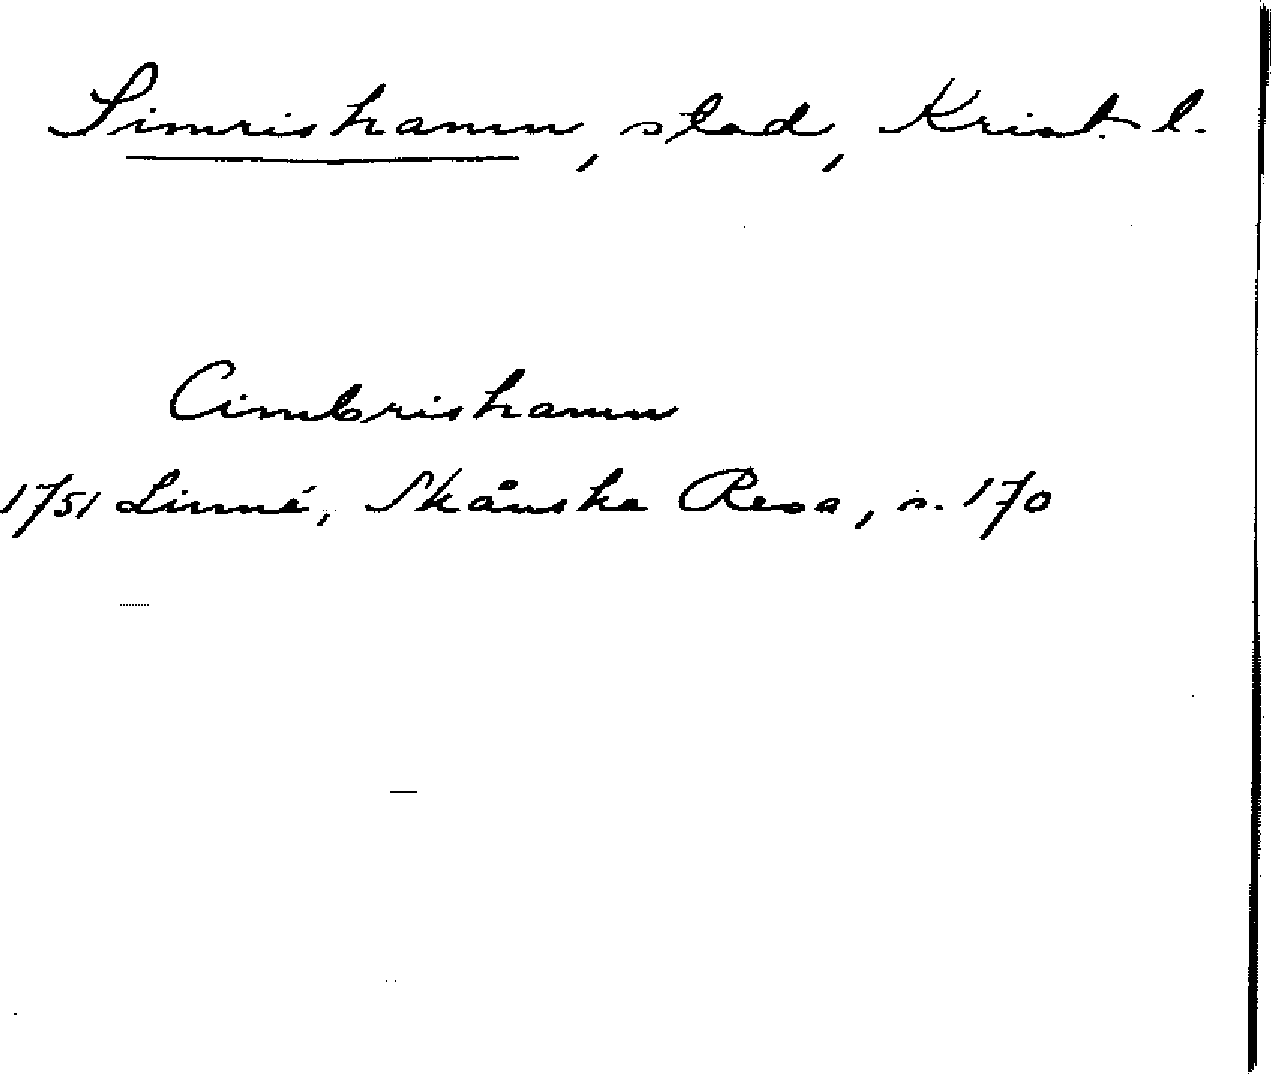 Simrishamn, stad, Krist. l.
Cimbrishamn
1751 Linné, Skånska Resa, s. 170